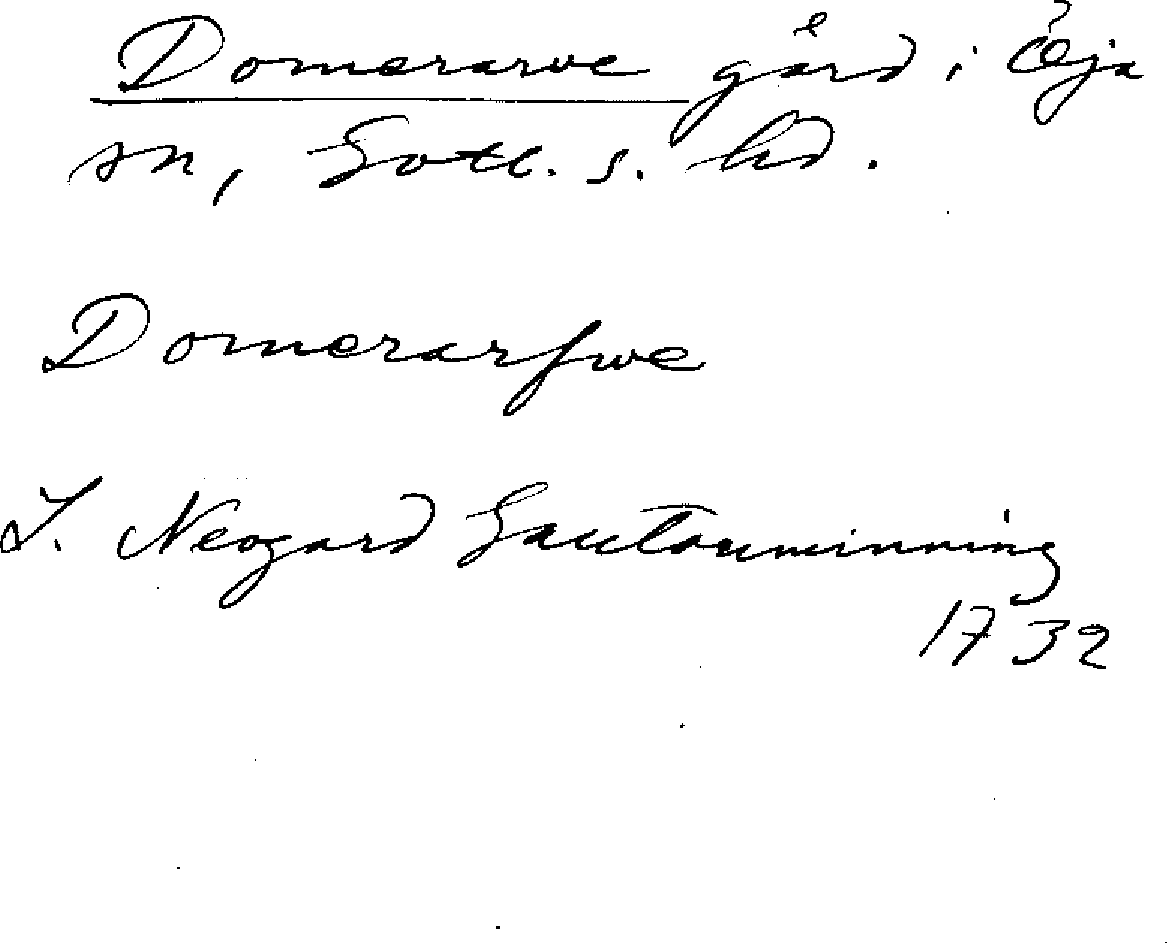 Domerarve gård i Öja
sn, Gotl. s. hd.
Domerarfwe
J. Neogard Gautauminning
1732